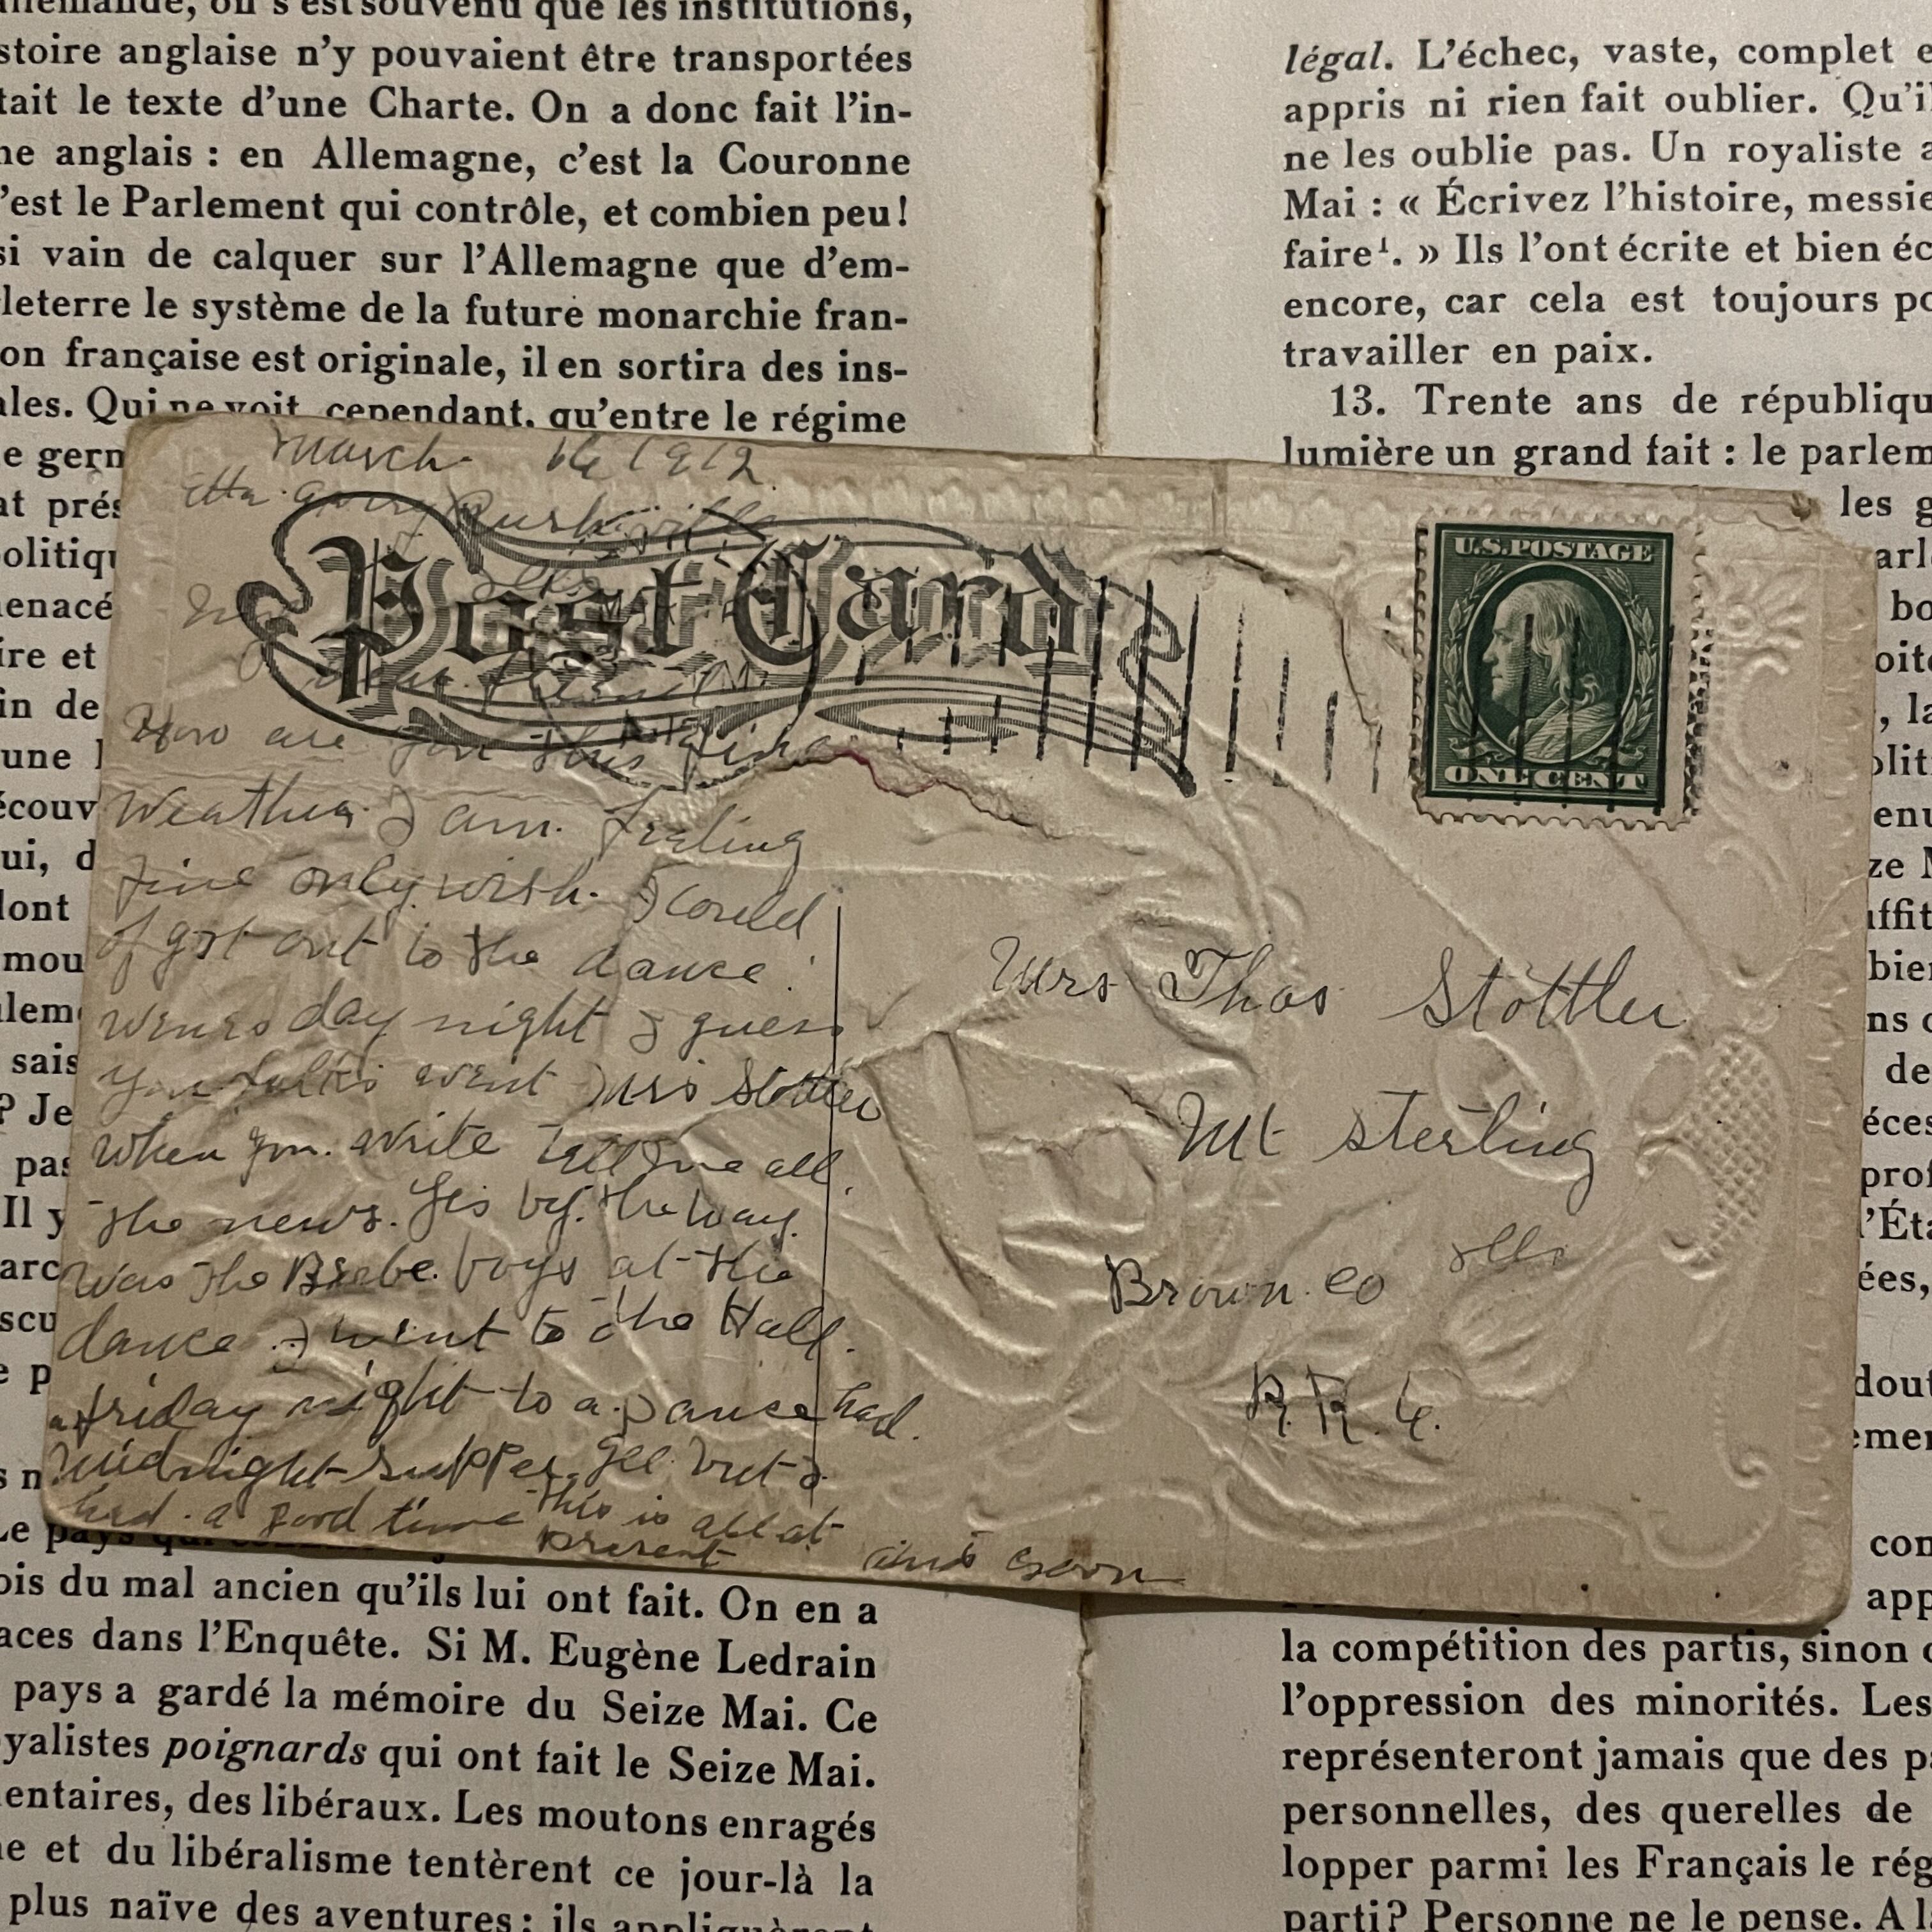 allemande, on s'est souvenu que les institutions,
stoire anglaise n'y pouvaient être transportées
tait le texte d'une Charte. On a donc fait l'in-
ne anglais : en Allemagne, c'est la Couronne
'est le Parlement qui contrôle, et combien peu!
si vain de calquer sur l'Allemagne que d'em-
leterre le système de la future monarchie fran-
on française est originale, il en sortira des ins-
ales. Qui ne voit, cependant, qu'entre le régime
e germ
at prés
politiqu
menacé
ire et
in de
une l
écouv
ui, d
dont
mou
lem
sais
? Je
pas
Il y
arc
scu
e p
s n
Le pays qui
ois du mal ancien qu'ils lui ont fait. On en a
aces dans l'Enquête. Si M. Eugène Ledrain
pays a gardé la mémoire du Seize Mai. Ce
yalistes poignards qui ont fait le Seize Mai.
entaires, des libéraux. Les moutons enragés
ne et du libéralisme tentèrent ce jour-là la
plus naïve des aventures : ils appliquèrent
légal. L'échec, vaste, complet e
appris ni rien fait oublier. Qu'il
ne les oublie pas. Un royaliste a
Mai : « Écrivez l'histoire, messie
faire¹. » Ils l'ont écrite et bien éc
encore, car cela est toujours po
travailler en paix.
13. Trente ans de républiqu
lumière un grand fait : le parlem
les g
arl
bo
oite
, la
oliti
enu
ze M
uffit
bien
ns c
de
éces
prof
l'Éta
ées,
dout
eme
con
app
la compétition des partis, sinon c
l'oppression des minorités. Les
représenteront jamais que des pa
personnelles, des querelles de
lopper parmi les Français le rég
parti? Personne ne le pense. A l
March 16 1912
Etta Rushville
Ills
Post Card
Dear friend
How are you this fine
weather I am feeling
fine only wish I could
of got out to the dance
wensday night I guess
you folks went Mrs Stottler
when you write tell me all
the news. Yes by the way
was the boys at the
dance I went to the Hall
friday night to a Dance had
midnight supper gee but I
had a good time this is all at
present ans soon
U.S. POSTAGE
ONE CENT
Mrs Thos Stottler
Mt sterling
Brown co Ills
R.R. 4.